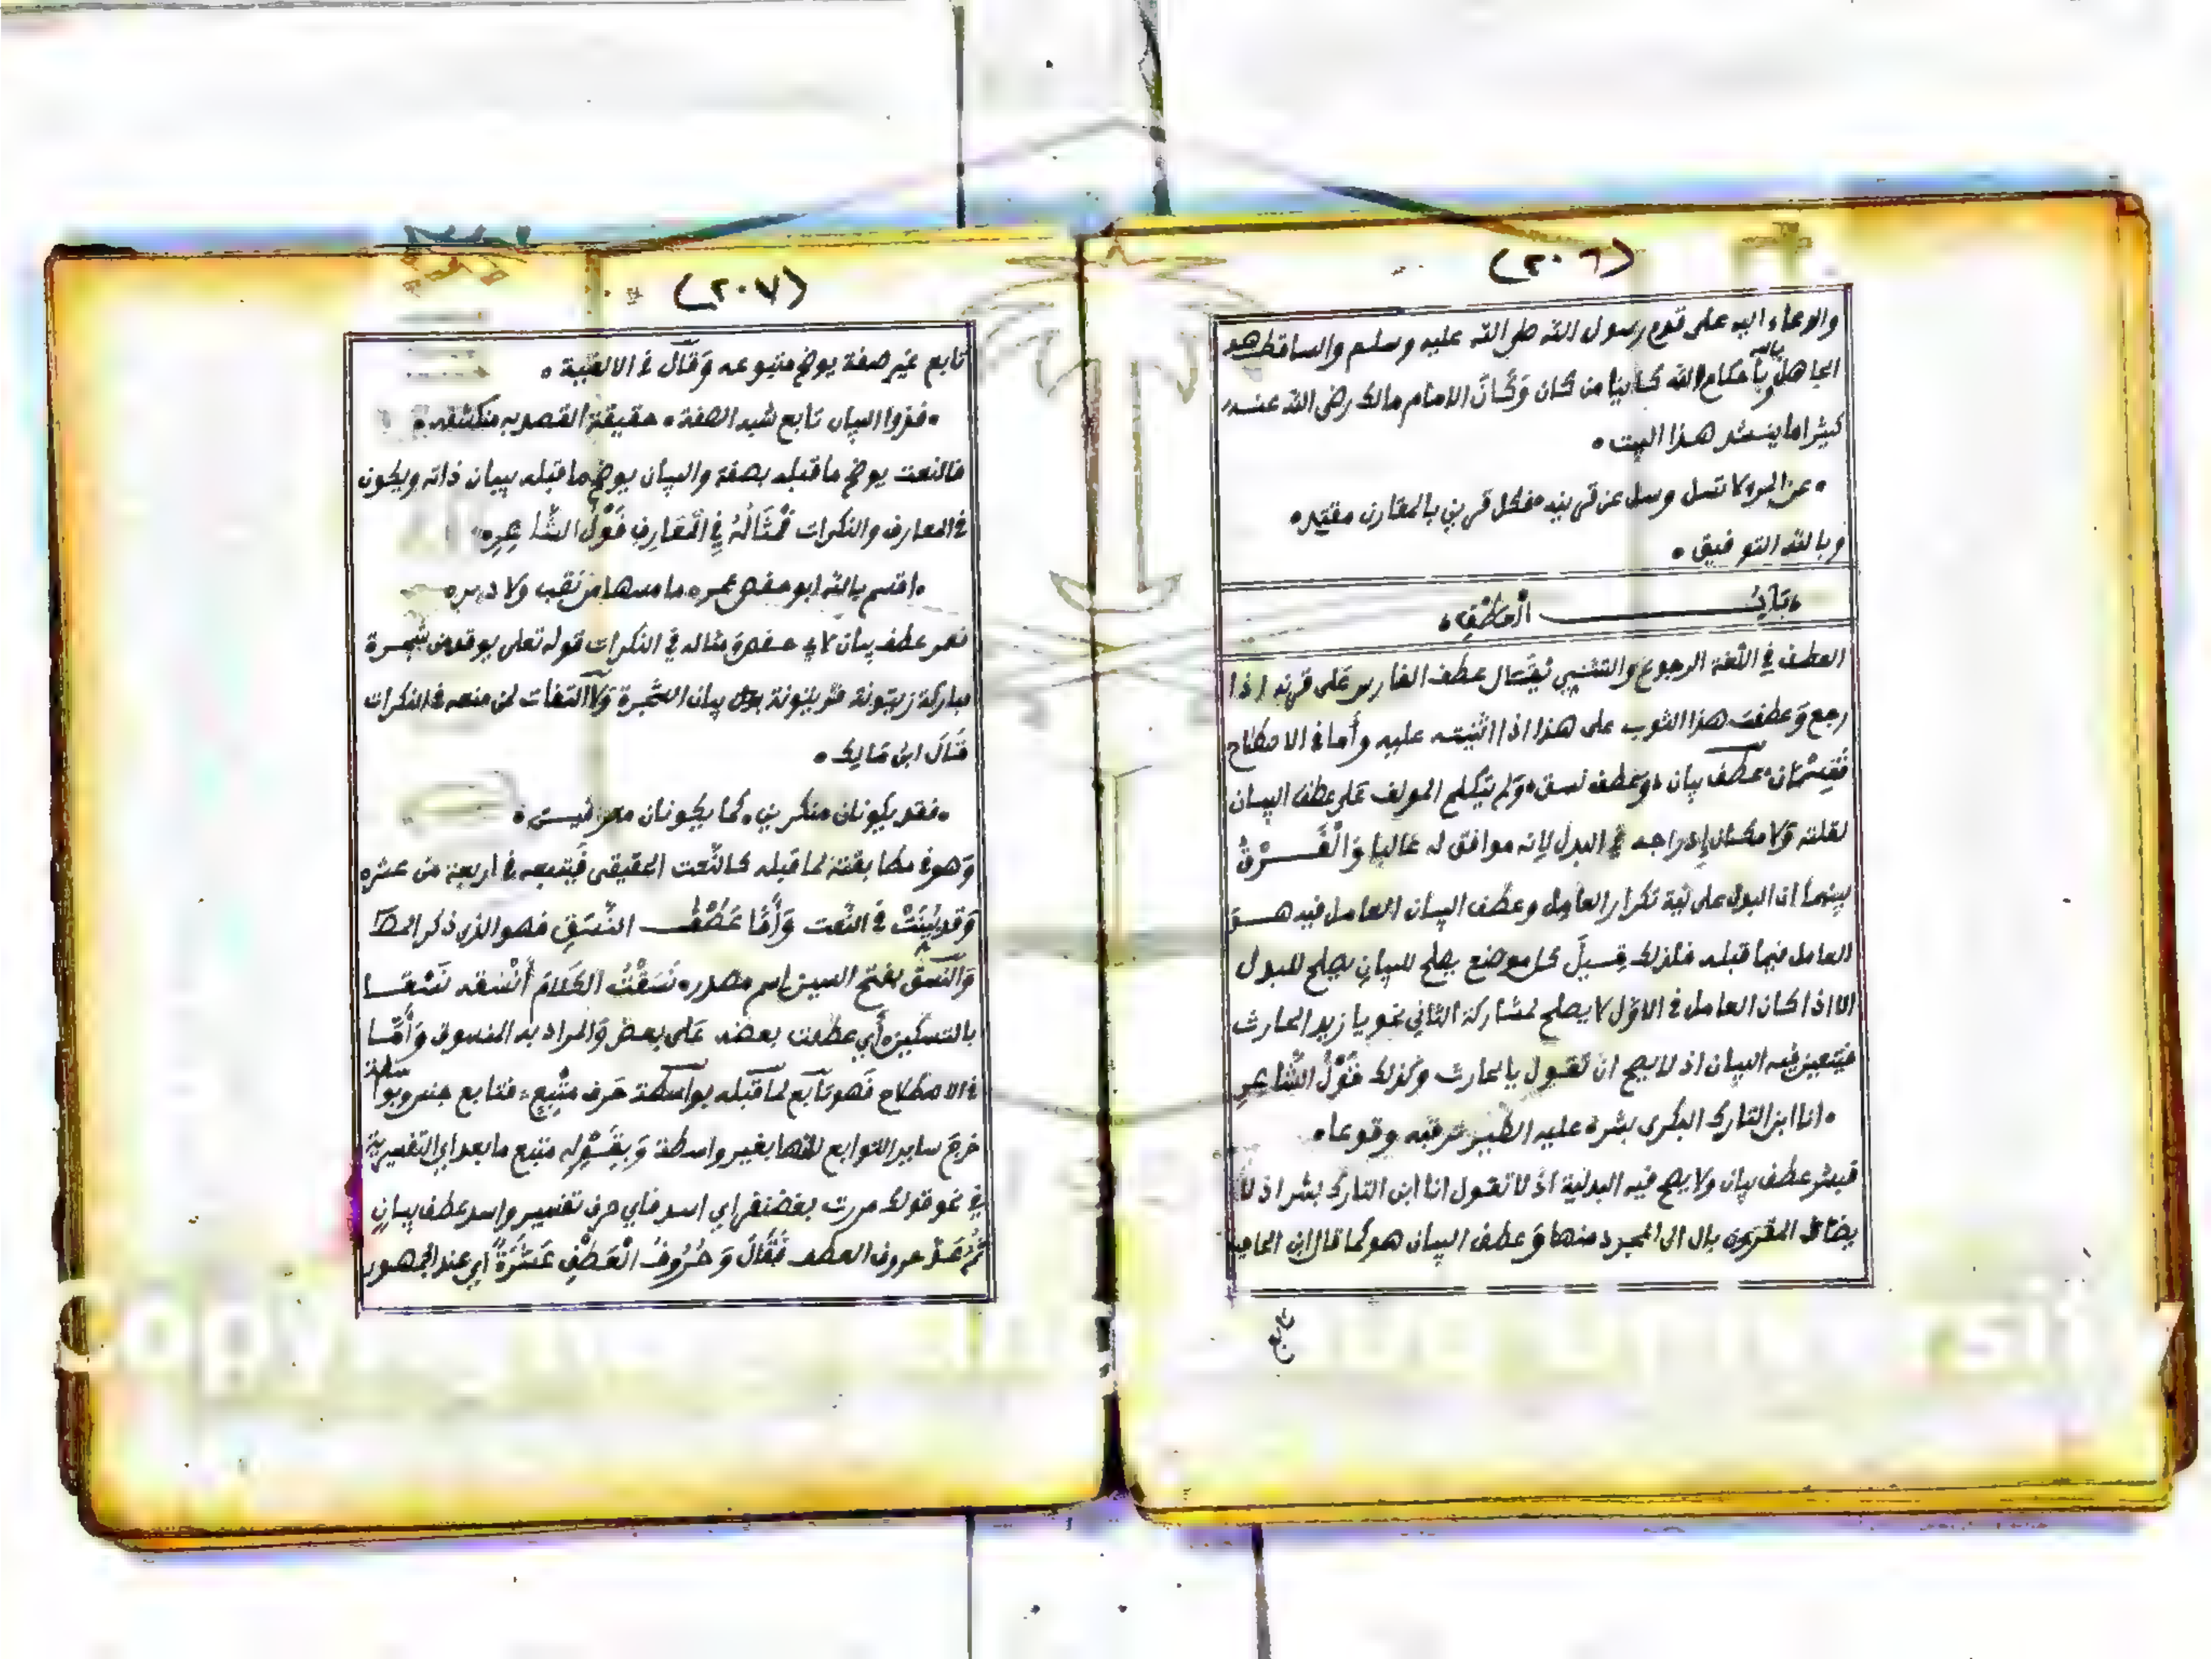 (٢٠٦)
والدعاء اليه على قدم رسول الله صلى الله عليه وسلم والساقط هو
الجاهل بالله وبأحكام الله كاينا من كان وَكَانَ الامام مالك رضى الله عنه
كثيرا ما ينشد هذا البيت ٠
٠ عن المرء لا تسل وسل عن قرينه ٠ فكل قرين بالمقارن مقتد ٠
وبالله التوفيق ٠
٠ بَابُ الْعَطْفِ ٠
العطف في اللغة الرجوع والتثني يُقَال عطف الفارس عَلى قرنه اذا
رجع وَعطفت هذا الثوب على هذا اذا اثنيته عليه وأما في الاصطلاح
فَقِسْمَان ٠ عطف بيان ٠ وَعطف نسق ٠ وَلم يتكلم المولف عَلى عطف البيان
لقلته وَلا مكان إدراجه في البدل لانه موافق له غالبا وَالْفَرْقُ
بينهما ان البدل على نية تكرار العامِل وعطف البيان العامل فيه هو
العامل فيما قبله فلذلك قِيلَ كل موضع يصلح للبيان يصلح للبدل
الا اذا كان العامل في الاوّل لا يصلح لمشاركة الثاني نحو يا زيد الحارث
فيتعين فيه البيان اذ لا يصح ان تقول يا الحارث وكذلك قَوْلُ الشَّاعِرِ
٠ انا ابن التارك البكرى بشر ٠ عليه الطير ترقبه وقوعا ٠
فبشر عطف بيان ولا يصح فيه البدلية اذ لا تقول انا ابن التارك بشر اذ لا
يضاف المقرون بال الى المجرد منها وَعطف البيان هو كما قال ابن الحاجب
تابع
(٢٠٧)
تابع غير صفة يوضح متبوعه وَقال في الالفية ٠
٠ فذو البيان تابع شبه الصفة ٠ حقيقة القصد به منكشفه ٠
فالنعت يوضح ما قبله بصفة والبيان يوضح ما قبله ببيان ذاته ويكون
في المعارف والنكرات فَمِثَالُهُ فِي الْمَعَارِفِ قَوْلُ الشَّاعِرِ ٠
٠ اقسم بالله ابو حفص عمر ٠ ما مسها من نقب ولا دبر ٠
فعمر عطف بيان لابي حفص وَمثاله في النكرات قوله تعلى يوقد من شجرة
مباركة زيتونة فزيتونة بيان الشجرة وَلا التفات لمن منعه في النكرات
قَالَ ابن مَالِك ٠
٠ فقد يكونان منكرين ٠ كما يكونان معرفين ٠
وَهو في مطابقته لما قبله كالنَّعت الحقيقى فَيتبعه في اربعة من عشره
وَقد بُيِّنَتْ في النَّعت وَأَمَّا عَطْفُ النَّسَقِ فهو الذى ذكر المص
وَالنَّسق بفتح السين اسم مصدره نَسَقْتُ الكَلَامَ أَنْسقه نَسْقا
بالتسكين أي عطفت بعضه عَلى بعض وَالمراد به المنسوق وَأَمَّا
في الاصطلاح فَهو تَابع لما قبله بواسطة حَرف متْبِعٍ ٠ فتابع جنس وبواسطة
خرج ساير التوابع لانها بغير واسطة وَبِقَوْلِه متبع ما بعد اي التفسيرية
في نحو قولك مررت بغضنفر اي اسد فاي حرف تفسير واسد عطف بيان
ثُمَّ عَدَّ حروف العطف فَقَالَ وَحُرُوفُ الْعَطْفِ عَشَرَةٌ اي عند الجمهور